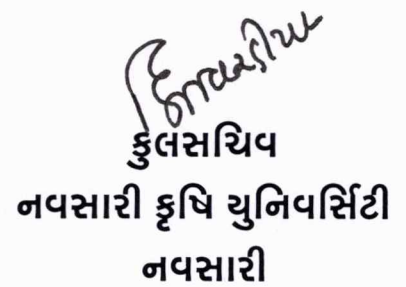 કુલસચિવ
નવસારી કૃષિ યુનિવર્સિટી
નવસારી